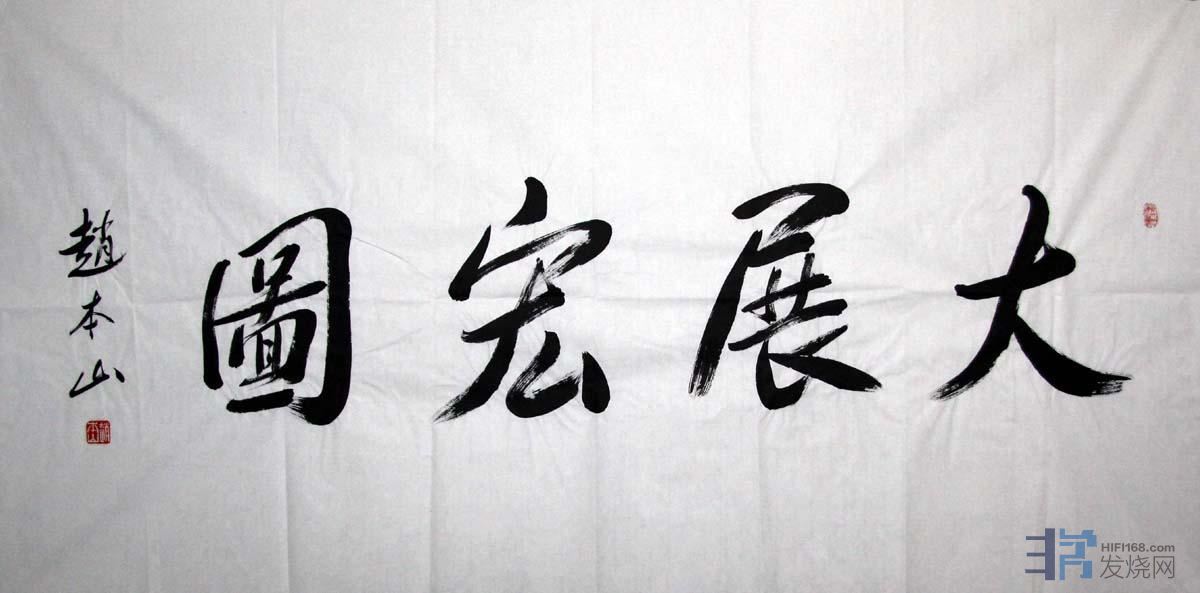 大展宏圖
趙本山
HIFI168.com
发烧网